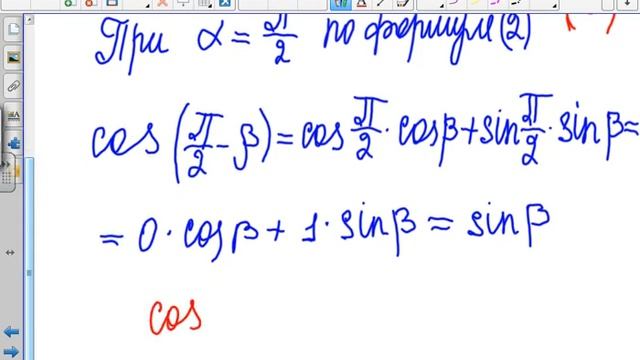 При α = π/2 по формуле (2)
cos (π/2 - β) = cos π/2 · cosβ + sin π/2 · sinβ =
= 0 · cosβ + 1 · sinβ = sinβ
cos